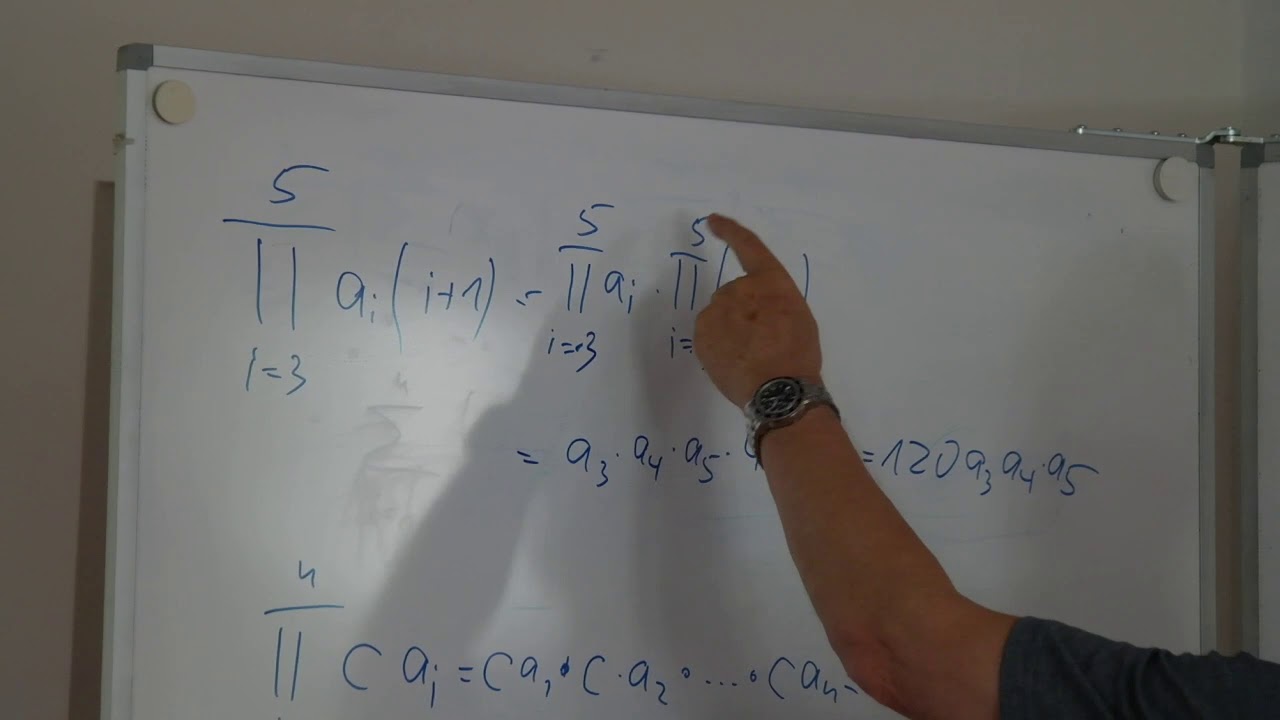 5 5 5
∏ aᵢ(i+1) = ∏ aᵢ · ∏ ( )
i=3 i=3 i=
= a₃ · a₄ · a₅ · = 120 a₃ a₄ · a₅
n
∏ C aᵢ = C a₁ · C · a₂ · ... · C aₙ